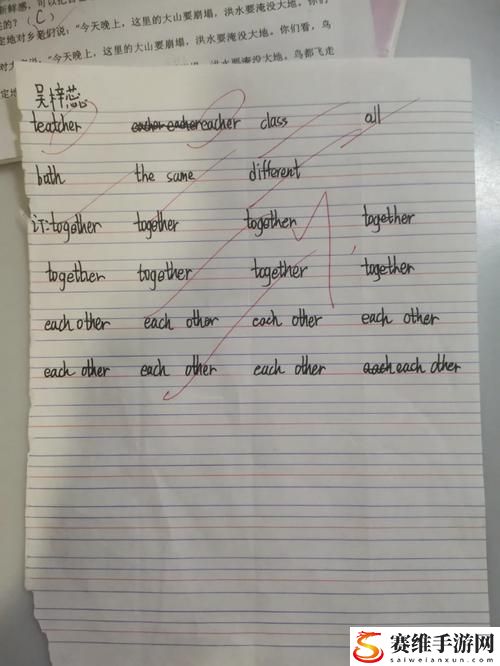 新鲜感,可以把
的?(C)
定地对乡老们说:“今天晚上,这里的大山要崩塌,洪水要淹没大地。你们
对大 说:“今天晚上,这里的大山要崩塌,洪水要淹没大地。你们看,鸟
定地 洪水要淹没大地。鸟都飞走
吴梓蕊
teatcher eacher eacher eacher class all
bath the same different
订:together together together together
together together together together
each other each other each other each other
each other each other each other each each other
赛维手游网
www.saiweianxun.com